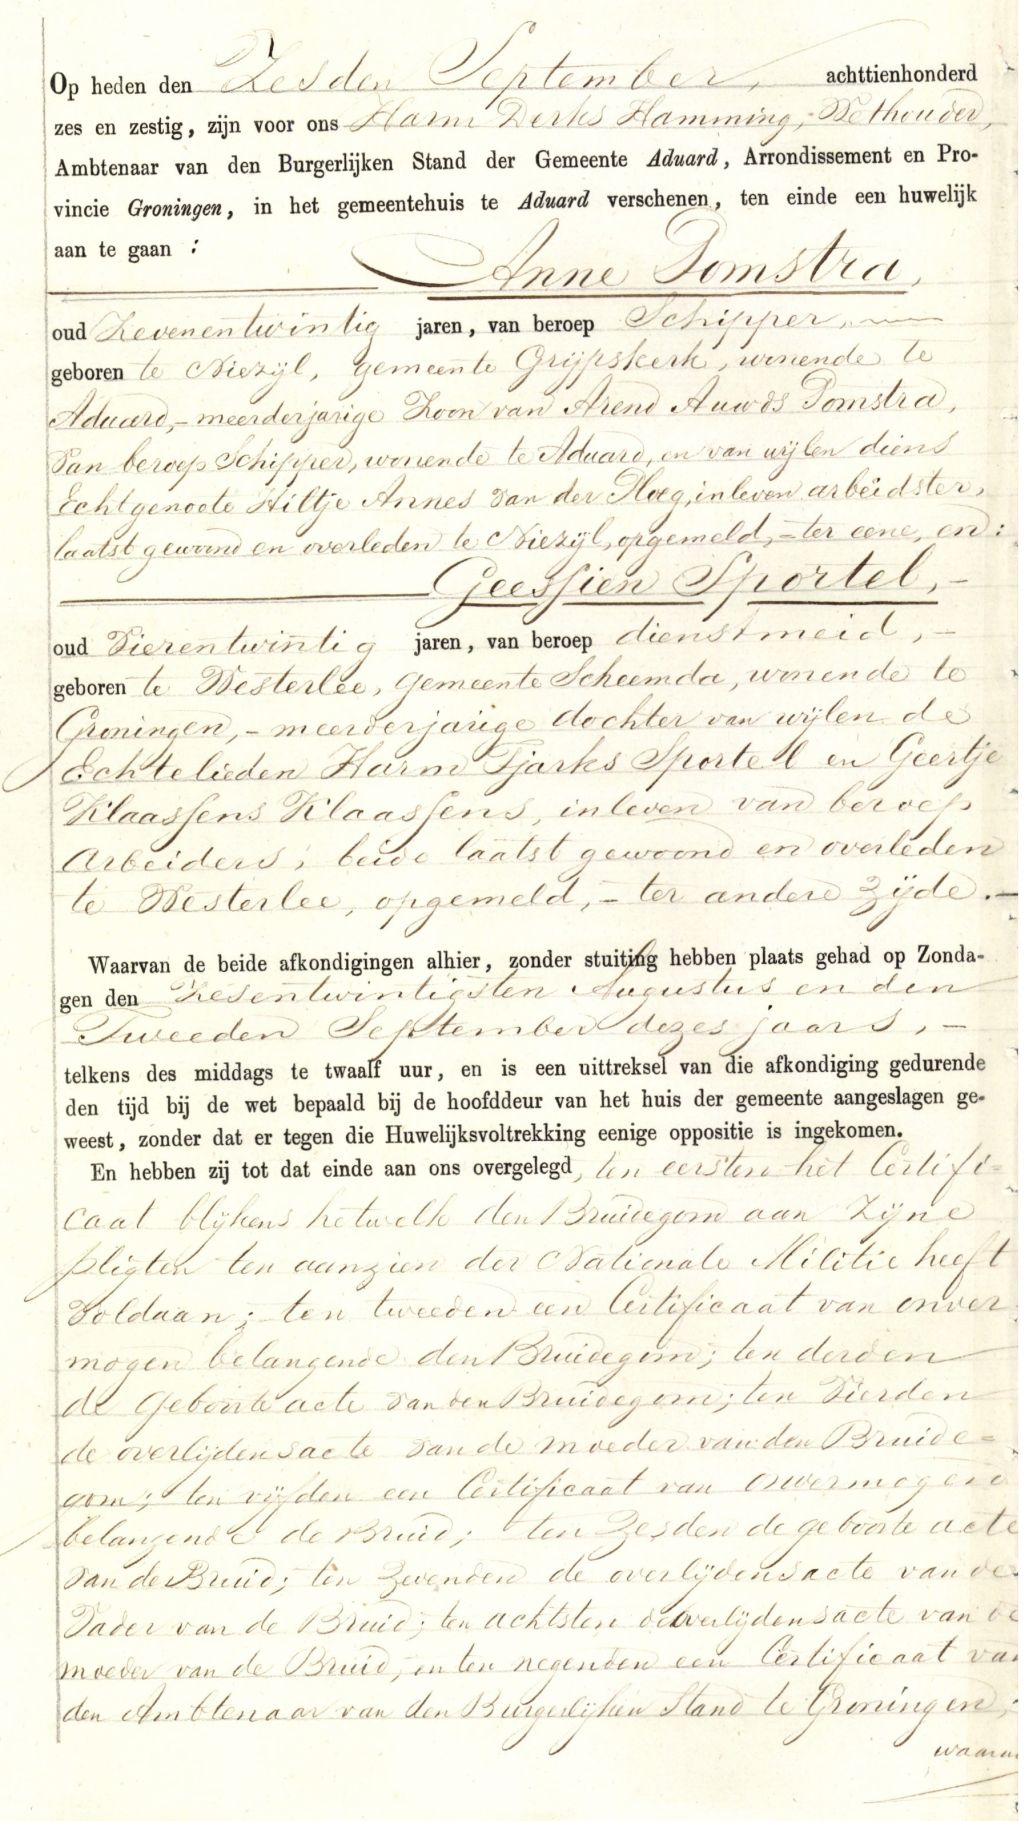 Op heden den Zesden September, achttienhonderd
zes en zestig, zijn voor ons Harm Derks Hamming, Wethouder,
Ambtenaar van den Burgerlijken Stand der Gemeente Aduard, Arrondissement en Pro-
vincie Groningen, in het gemeentehuis te Aduard verschenen, ten einde een huwelijk
aan te gaan :
Anne Pomstra,
oud Zevenentwintig jaren, van beroep Schipper,
geboren te Niezijl, gemeente Grijpskerk, wonende te
Aduard,- meerderjarige Zoon van Arend Auwds Pomstra,
van beroep Schipper, wonende te Aduard, en van wijlen diens
Echtgenoote Hiltje Annes van der Ploeg, in leven arbeidster,
laatst gewoond en overleden te Niezijl, opgemeld,- ter eene, en:
Geessien Sportel,-
oud Vierentwintig jaren, van beroep dienstmeid,-
geboren te Westerlee, Gemeente Scheemda, wonende te
Groningen,- meerderjarige dochter van wijlen de
Echtelieden Harm Tjarks Sportel en Geertje
Klaassens Klaassens, in leven van beroep
Arbeiders, beide laatst gewoond en overleden
te Westerlee, opgemeld,- ter andere Zijde.-
Waarvan de beide afkondigingen alhier, zonder stuiting hebben plaats gehad op Zonda-
gen den Zesentwintigsten Augustus en den
Tweeden September dezes jaars,-
telkens des middags te twaalf uur, en is een uittreksel van die afkondiging gedurende
den tijd bij de wet bepaald bij de hoofddeur van het huis der gemeente aangeslagen ge-
weest, zonder dat er tegen die Huwelijksvoltrekking eenige oppositie is ingekomen.
En hebben zij tot dat einde aan ons overgelegd, ten eersten het Certifi=
caat blijkens hetwelk den Bruidegom aan Zijne
pligten ten aanzien der Nationale Militie heeft
voldaan; ten tweeden een Certificaat van onver
mogen belangende den Bruidegom; ten derden
de Geboorte acte van den Bruidegom; ten Vierden
de overlijdensacte van de moeder van den Bruide=
gom; ten vijfden een Certificaat van onvermogen
belangende de Bruid; ten Zesden de geboorte acte
van de Bruid; ten Zevenden de overlijdensacte van de
Vader van de Bruid; ten achtsten de overlijdensacte van de
moeder van de Bruid, en ten negenden een Certificaat van
den Ambtenaar van den Burgerlijken Stand te Groningen,